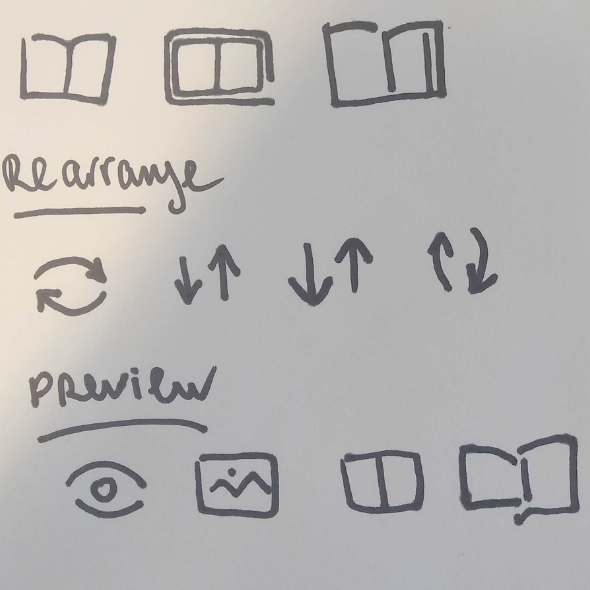 Rearrange
preview